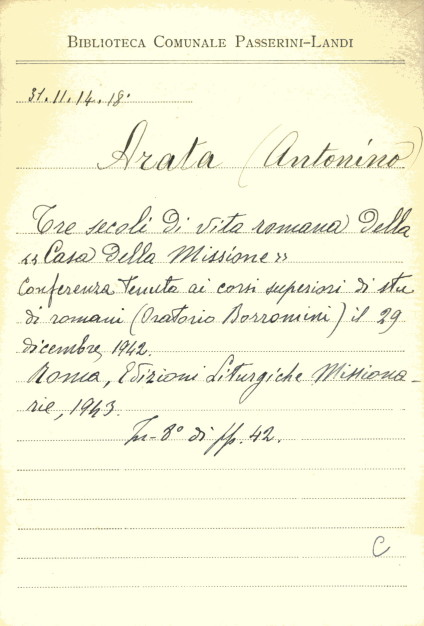 BIBLIOTECA COMUNALE PASSERINI-LANDI
31.11.14.18.
Arata (Antonino)
Tre secoli di vita romana della
«Casa della Missione»
Conferenza tenuta ai corsi superiori di stu
di romani (Oratorio Borromini) il 29
dicembre 1942.
Roma, Edizioni Liturgiche Missiona-
rie, 1943.
In-8° di pp. 42.
C